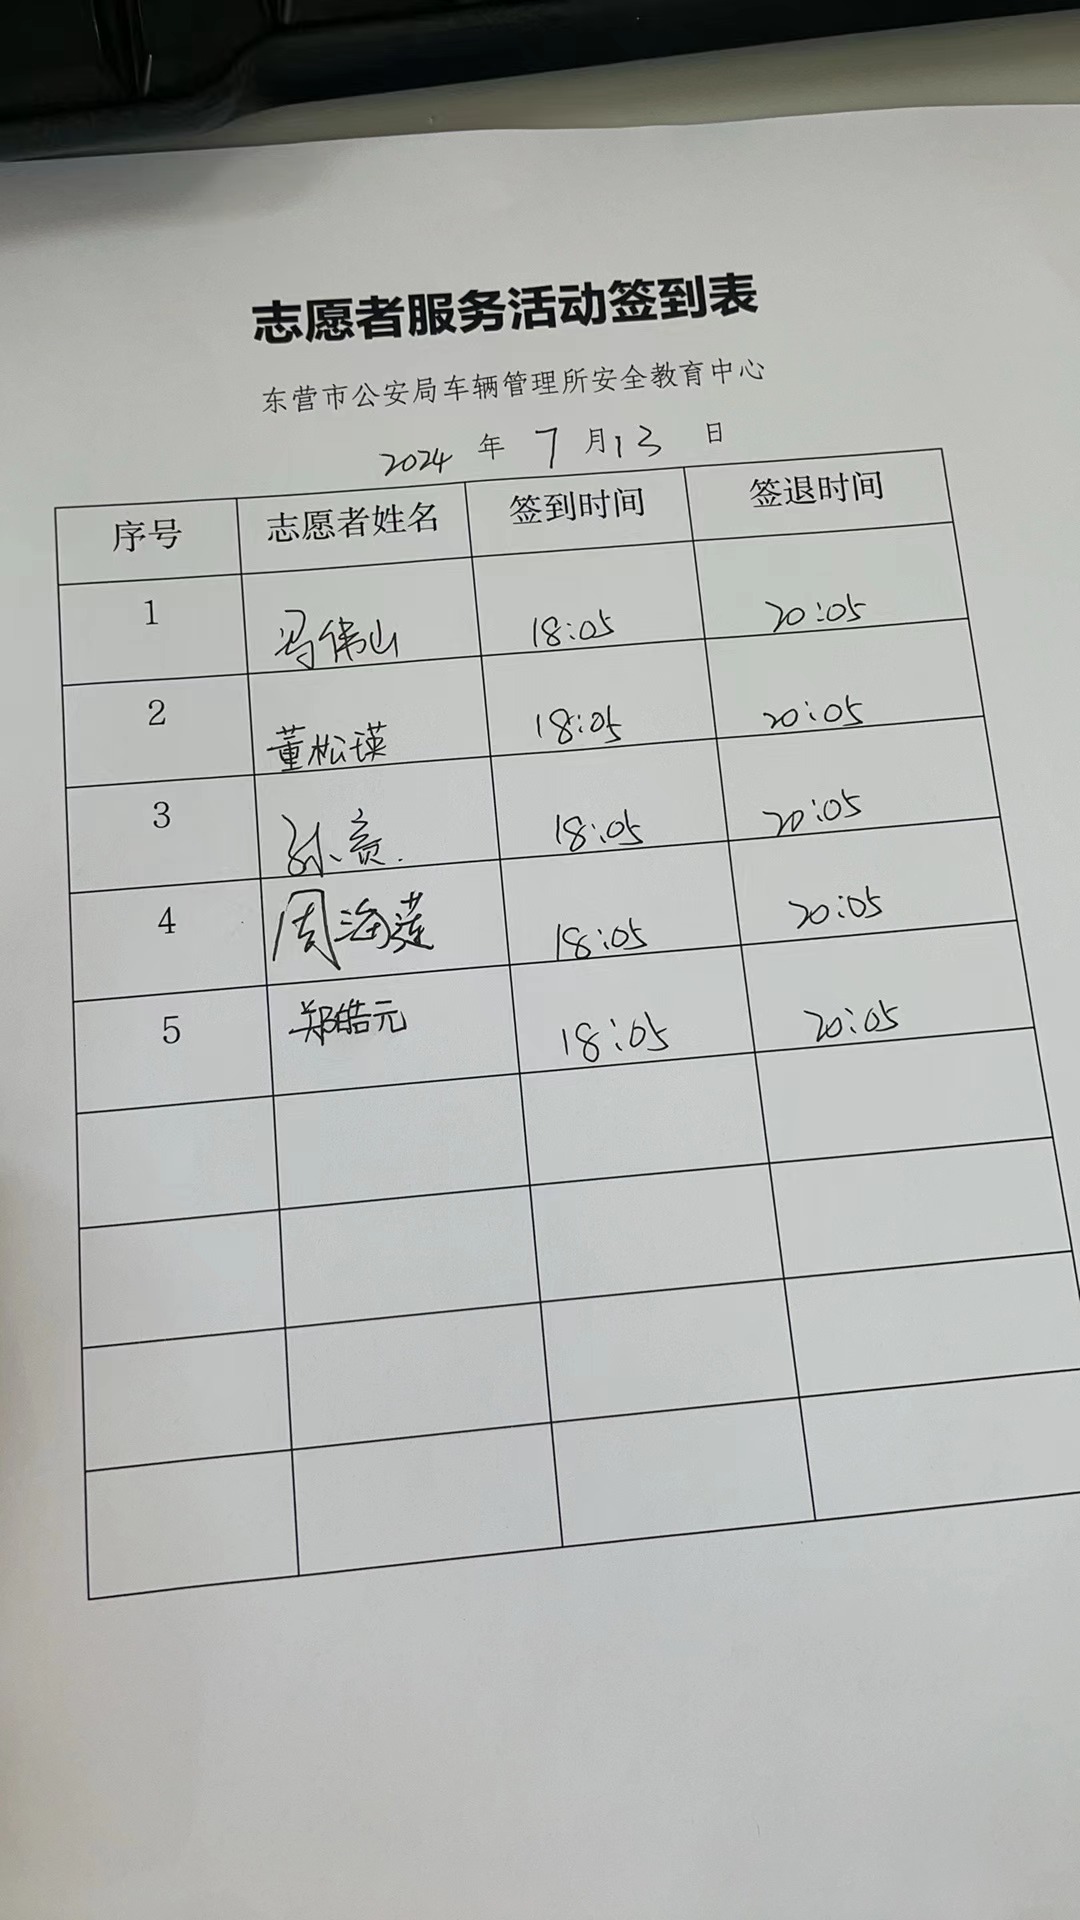 志愿者服务活动签到表
东营市公安局车辆管理所安全教育中心
2024 年 7 月 13 日
序号 志愿者姓名 签到时间 签退时间
1 冯伟山 18:05 20:05
2 董松瑛 18:05 20:05
3 孙 18:05 20:05
4 周海莲 18:05 20:05
5 郑皓元 18:05 20:05